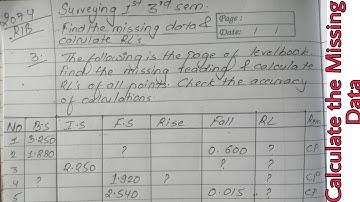 2074
RIB
Surveying 1st 3rd sem.
Find the missing data &
calculate RLs
Page:
Date: / /
3. The following is the page of levelbook
find the missing reading & calculate
RL's of all points. Check the accuracy
of calculations
No B.S I.S F.S Rise Fall RL Rem
1 3.250
2 1.880 ? 0.600 ? CP
3 2.250 ? ?
4 ? 1.920 ? ? CP
5 2.540 0.015 ? CP
Calculate the Missing
Data